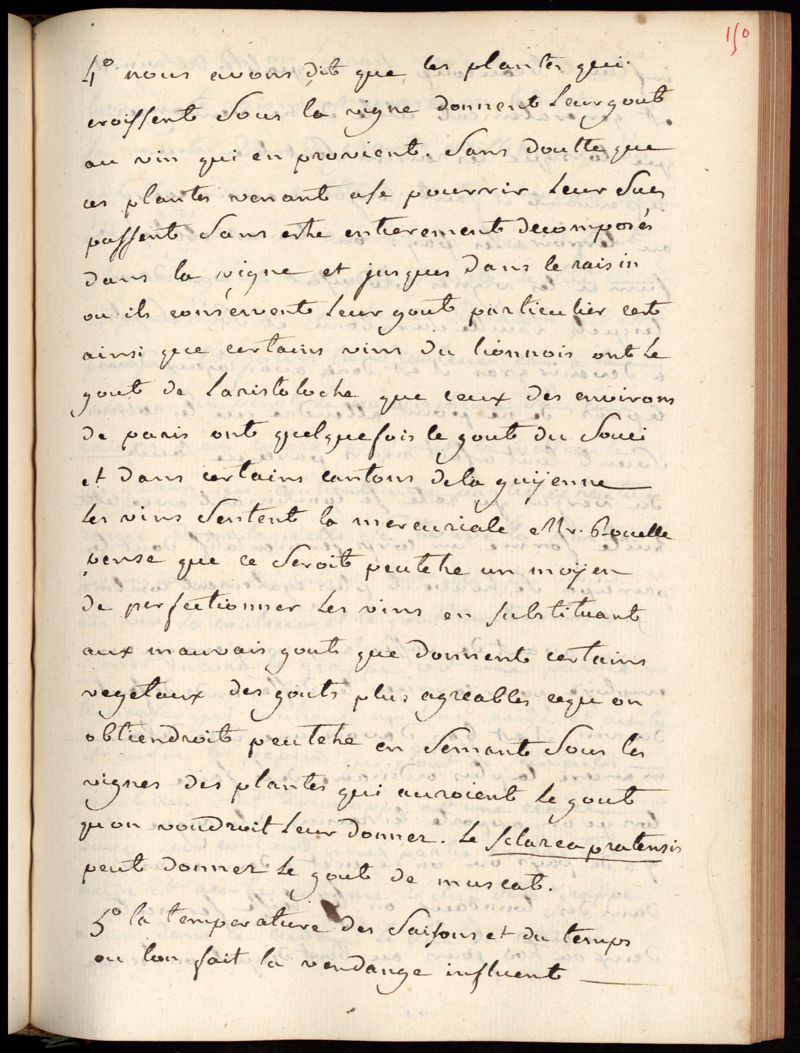 150
4° nous avons dit que les plantes qui
croissent sous la vigne donnent leur gout
au vin qui en provient. sans doutte que
ces plantes venant ase pourrir leur sucs
passent sans estre entierement decomposés
dans la vigne et jusques dans le raisin
ou ils consérvent leur gout particulier cest
ainsi que certains vins du lionnois ont le
gout de laristoloche que ceux des environs
de paris ont quelquefois le gout du souci
et dans certains cantons dela guÿenne
les vins sentent la mercuriale Mr. Rouelle
pense que ce seroit peutetre un moÿen
de perfectionner les vins en substituant
aux mauvais gouts que donnent certains
vegetaux des gouts plus agreables cequ on
obtiendroit peutetre en semant sous les
vignes des plantes qui auroient le gout
quon voudroit leur donner. Le sclarea pratensis
peut donner le gout de muscat.
5° la temperature des saisons et du temps
ou lon fait la vendange influent